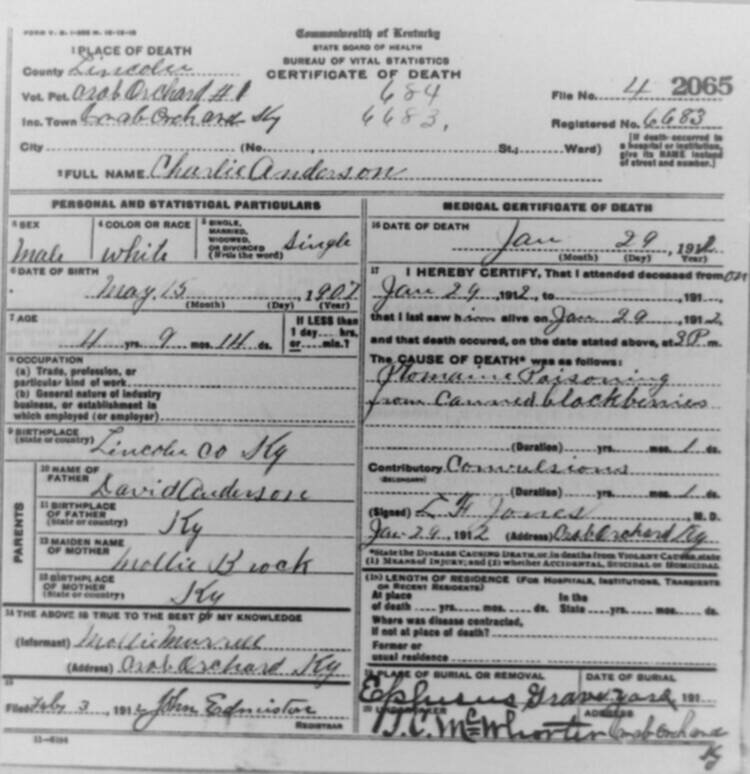 FORM V. S. 1-
Commonwealth of Kentucky
STATE BOARD OF HEALTH
BUREAU OF VITAL STATISTICS
CERTIFICATE OF DEATH
1 PLACE OF DEATH
County Lincoln
Vot. Pct. Crab Orchard #1
684
File No. 4 2065
Inc. Town Crab Orchard Ky
6683,
Registered No. 6683
City (No. St.; Ward)
[If death occurred in a hospital or institution, give its NAME instead of street and number.]
2 FULL NAME Charlie Anderson
PERSONAL AND STATISTICAL PARTICULARS
3 SEX
male
4 COLOR OR RACE
white
5 SINGLE, MARRIED, WIDOWED, OR DIVORCED (Write the word)
Single
6 DATE OF BIRTH
May 15 1907
(Month) (Day) (Year)
7 AGE
4 yrs. 9 mos. 14 ds.
If LESS than 1 day... hrs. or... min.?
8 OCCUPATION
(a) Trade, profession, or particular kind of work
(b) General nature of industry business, or establishment in which employed (or employer)
9 BIRTHPLACE (State or country)
Lincoln Co Ky
PARENTS
10 NAME OF FATHER
David Anderson
11 BIRTHPLACE OF FATHER (State or country)
Ky
12 MAIDEN NAME OF MOTHER
Mollie
13 BIRTHPLACE OF MOTHER (State or country)
Ky
14 THE ABOVE IS TRUE TO THE BEST OF MY KNOWLEDGE
(Informant) Mollie Murrell
(Address) Crab Orchard Ky
15
Filed Feb 3, 1912 John Edmiston
REGISTRAR
MEDICAL CERTIFICATE OF DEATH
16 DATE OF DEATH
Jan 29 1912
(Month) (Day) Year)
17 I HEREBY CERTIFY, That I attended deceased from on
Jan 29, 1912, to 191
that I last saw him alive on Jan 29, 1912
and that death occured, on the date stated above, at 3 P m.
The CAUSE OF DEATH* was as follows:
Ptomaine Poisoning
from canned blackberries
(Duration) yrs. mos. 1 ds.
Contributory Convulsions
(SECONDARY)
(Duration) yrs. mos. 1 ds.
(Signed) E H Jones M. D.
Jan 29, 1912 (Address) Crab Orchard Ky
*State the DISEASE CAUSING DEATH, or, in deaths from VIOLENT CAUSES, state
(1) MEANS OF INJURY; and (2) whether ACCIDENTAL, SUICIDAL or HOMICIDAL
(18) LENGTH OF RESIDENCE (FOR HOSPITALS, INSTITUTIONS, TRANSIENTS OR RECENT RESIDENTS)
At place of death yrs. mos. ds.
In the State yrs. mos. ds.
Where was disease contracted, If not at place of death?
Former or usual residence
19 PLACE OF BURIAL OR REMOVAL
Ephusus Grave Yard
DATE OF BURIAL
191
20 UNDERTAKER
J. C. McWhorter
ADDRESS
Crab Orchard
Ky
11-